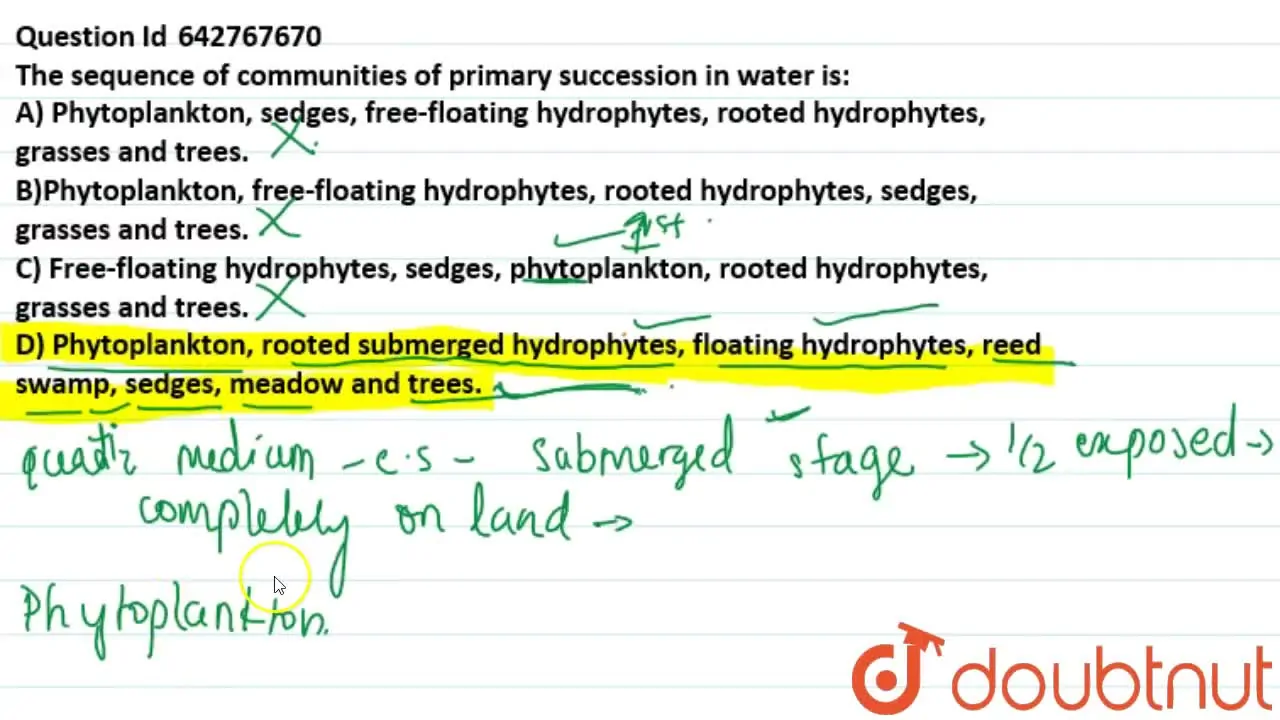 Question Id 642767670
The sequence of communities of primary succession in water is:
A) Phytoplankton, sedges, free-floating hydrophytes, rooted hydrophytes,
grasses and trees.
B)Phytoplankton, free-floating hydrophytes, rooted hydrophytes, sedges,
grasses and trees.
C) Free-floating hydrophytes, sedges, phytoplankton, rooted hydrophytes,
grasses and trees.
D) Phytoplankton, rooted submerged hydrophytes, floating hydrophytes, reed
swamp, sedges, meadow and trees.
medium - e.s - submerged stage → 1/2 exposed →
completely on land →
Phytoplankton.
doubtnut